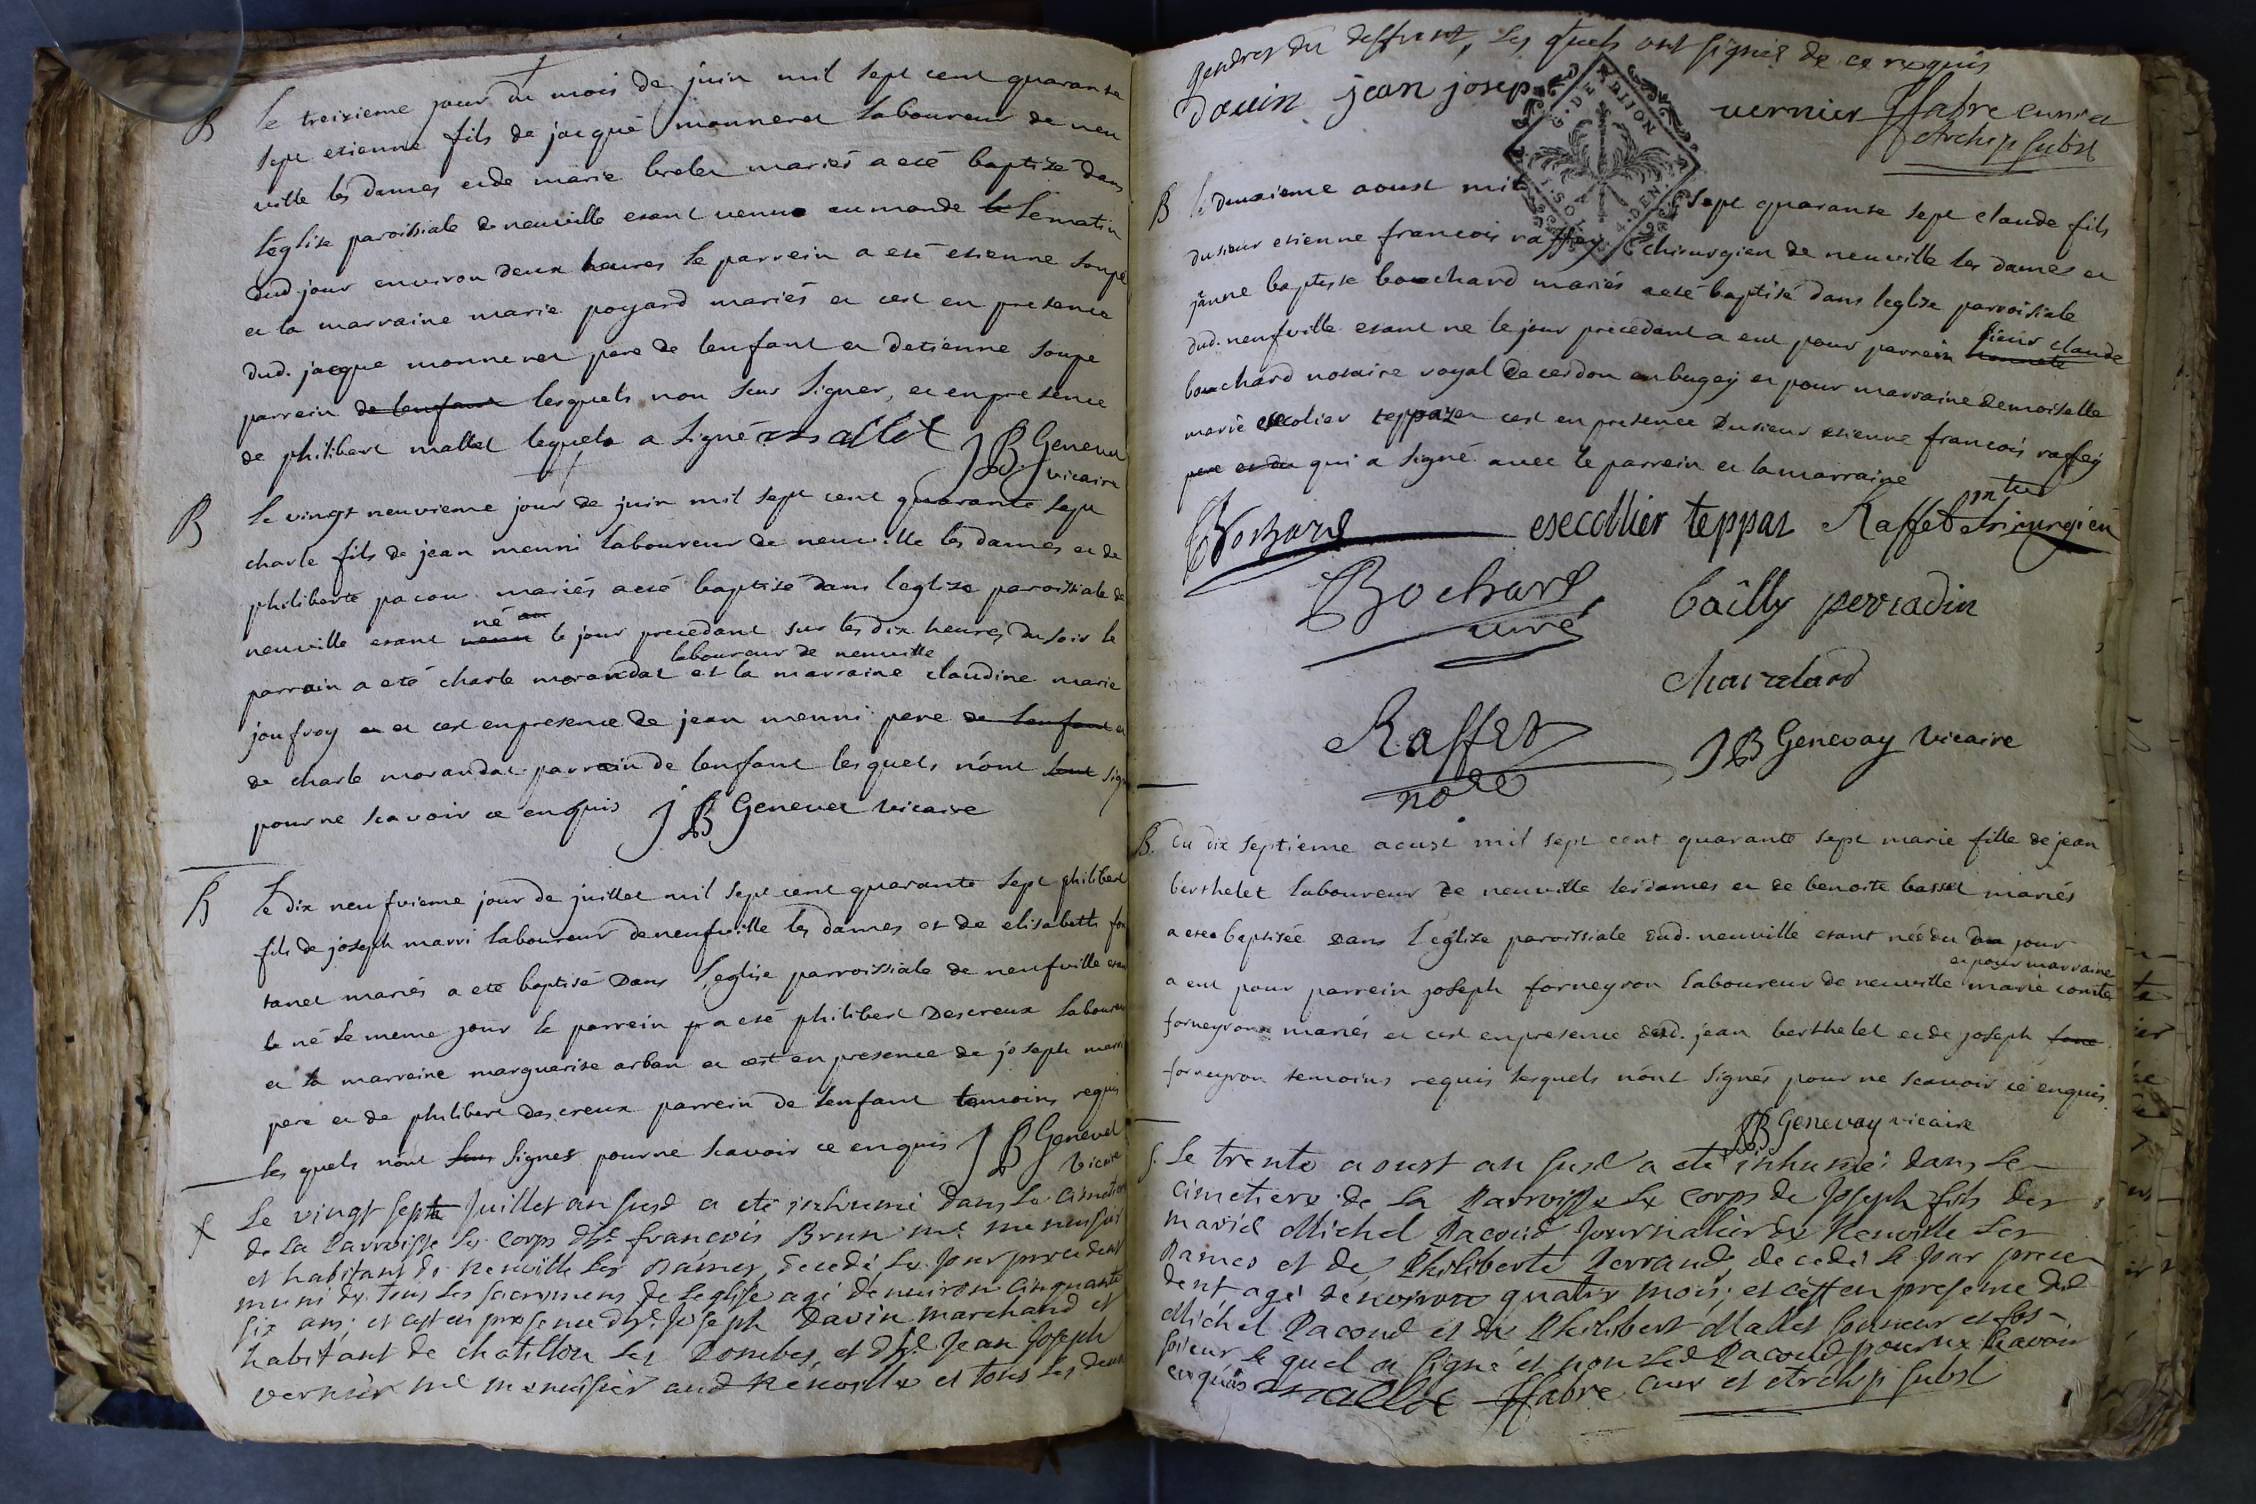 B
Le treizieme jour du mois de juin mil sept cent quarante
sept etienne fils de jacque monneret laboureur de neu
ville les dames et de marie breler mariés a eté baptisé dans
l'église paroissiale de neuville etant venu au monde le Le matin
dud. jour environ deux heures le parrein a eté etienne soupe
et la marraine marie poyard mariés et cest en presence
dud. jacque monneret pere de lenfant et detienne soupe
parrein de lenfant lesquels non sçus signer, et en presence
de philibert mallet lequel a signé mallet J B Genevet
vicaire
B
Le vingt neuvieme jour de juin mil sept cent quarante sept
charle fils de jean menni laboureur de neuville les dames et de
philiberte pacou mariés a eté baptisé dans leglize paroissiale de
neuville etant né le jour precedant sur les dix heures du soir le
parrain a eté charle morandat laboureur de neuville et la marraine claudine marie
joufroy et et cest en presence de jean menni pere de lenfant et
de charle morandat parrain de lenfant lesquels n'ont sceut sign
pour ne scavoir ce enquis J B Genevet vicaire
B
Le dix neufvieme jour de juillet mil sept cent quarante sept philibert
fils de joseph marri laboureur de neufville les dames et de elisabeth fon
tanet mariés a eté baptisé Dans L'eglise parroissiale de neufville etan
t né Le meme jour le parrein a eté philibert Descreux Laboureur
et la marraine marguerite arban et cest en presence de joseph marri
pere et de philibert descreux parrein de lenfant temoins requis
les quels n'ont signés pour ne scavoir ce enquis J B Genevet
Vicaire
Le vingt sept Juillet an susd a eté inhumé dans le Cimetiere
de la Parroisse le corps dsr. francois Brun me. menuisier
et habitant de Neuville les Dames, decedé le jour precedent
muni de tous les sacremens de leglise agé denuiron cinquante
six ans; et cest en presence dsr. Joseph Davin marchand et
habitant de chatillon les Dombes, et dsr. Jean Joseph
vernier me. menuisier aud Neuville et tous les deux
gendres du deffunt, Les quels ont signés de ce requis
Davin jean josep vernier ffabre curé et
Archip subst
G. DE DIJON
I. SOL 4. DEN.
B
le deuxieme aoust mil sept quarante sept claude fils
du sieur etienne francois raffey chirurgien de neuville les dames et
jeanne baptiste bouchard mariés a eté baptisé dans leglize parroissiale
dud. neufville etant ne le jour precedant a eut pour parrein honnete sieur claude
bouchard notaire royal de cerdon en bugey et pour marraine demoiselle
marie escolier teppaz et cest en presence du sieur etienne francois raffey
pere et du qui a signé avec le parrein et la marraine
Bochard esecollier teppaz Raffet chirurgien
Bochard curé bailly perradin
Chavelard
Raffet nore
J B Genevay Vicaire
B.
Du dix septieme aoust mil sept cent quarante sept marie fille de jean
berthelet laboureur de neuville les dames et de benoite basset mariés
a etee baptisée dans l'église paroissiale dud. neuville etant née du jour
a eut pour parrein joseph forneyron laboureur de neuville et pour marraine marie comte
forneyron mariés et cest en presence dud. jean berthelet et de joseph fone
forneyron temoins requis lesquels n'ont signés pour ne scavoir ce enquis.
J B Genevay vicaire
S.
Le trente aoust an susd a eté inhumé dans le
cimetiere de la Parroisse le corps de Joseph fils des
mariés Michel Pacoud journalier de Neuville les
Dames et de Philiberte Ferrand, decedé le jour prece
dent agé denviron quatre mois; et cest en presence dud
Michel Pacoud et de Philibert Mallet sonneur et fos
soieur le quel a signé et non led Pacoud pour ne scavoir
enquis mallet ffabre curé et Archip subst